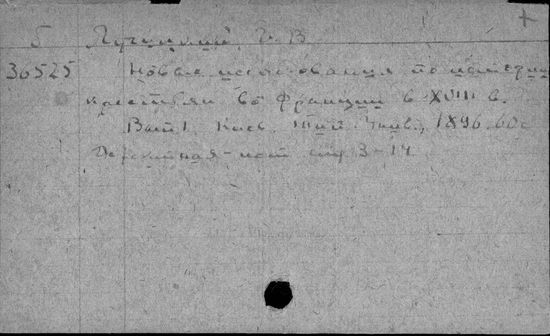 Б Лучицкий, И.В
30525 Новые исследования по истории
крестьян во Франции в XVIII в.
Вып 1. Киев. Тип. Унив., 1896. 60с
стр 3-14